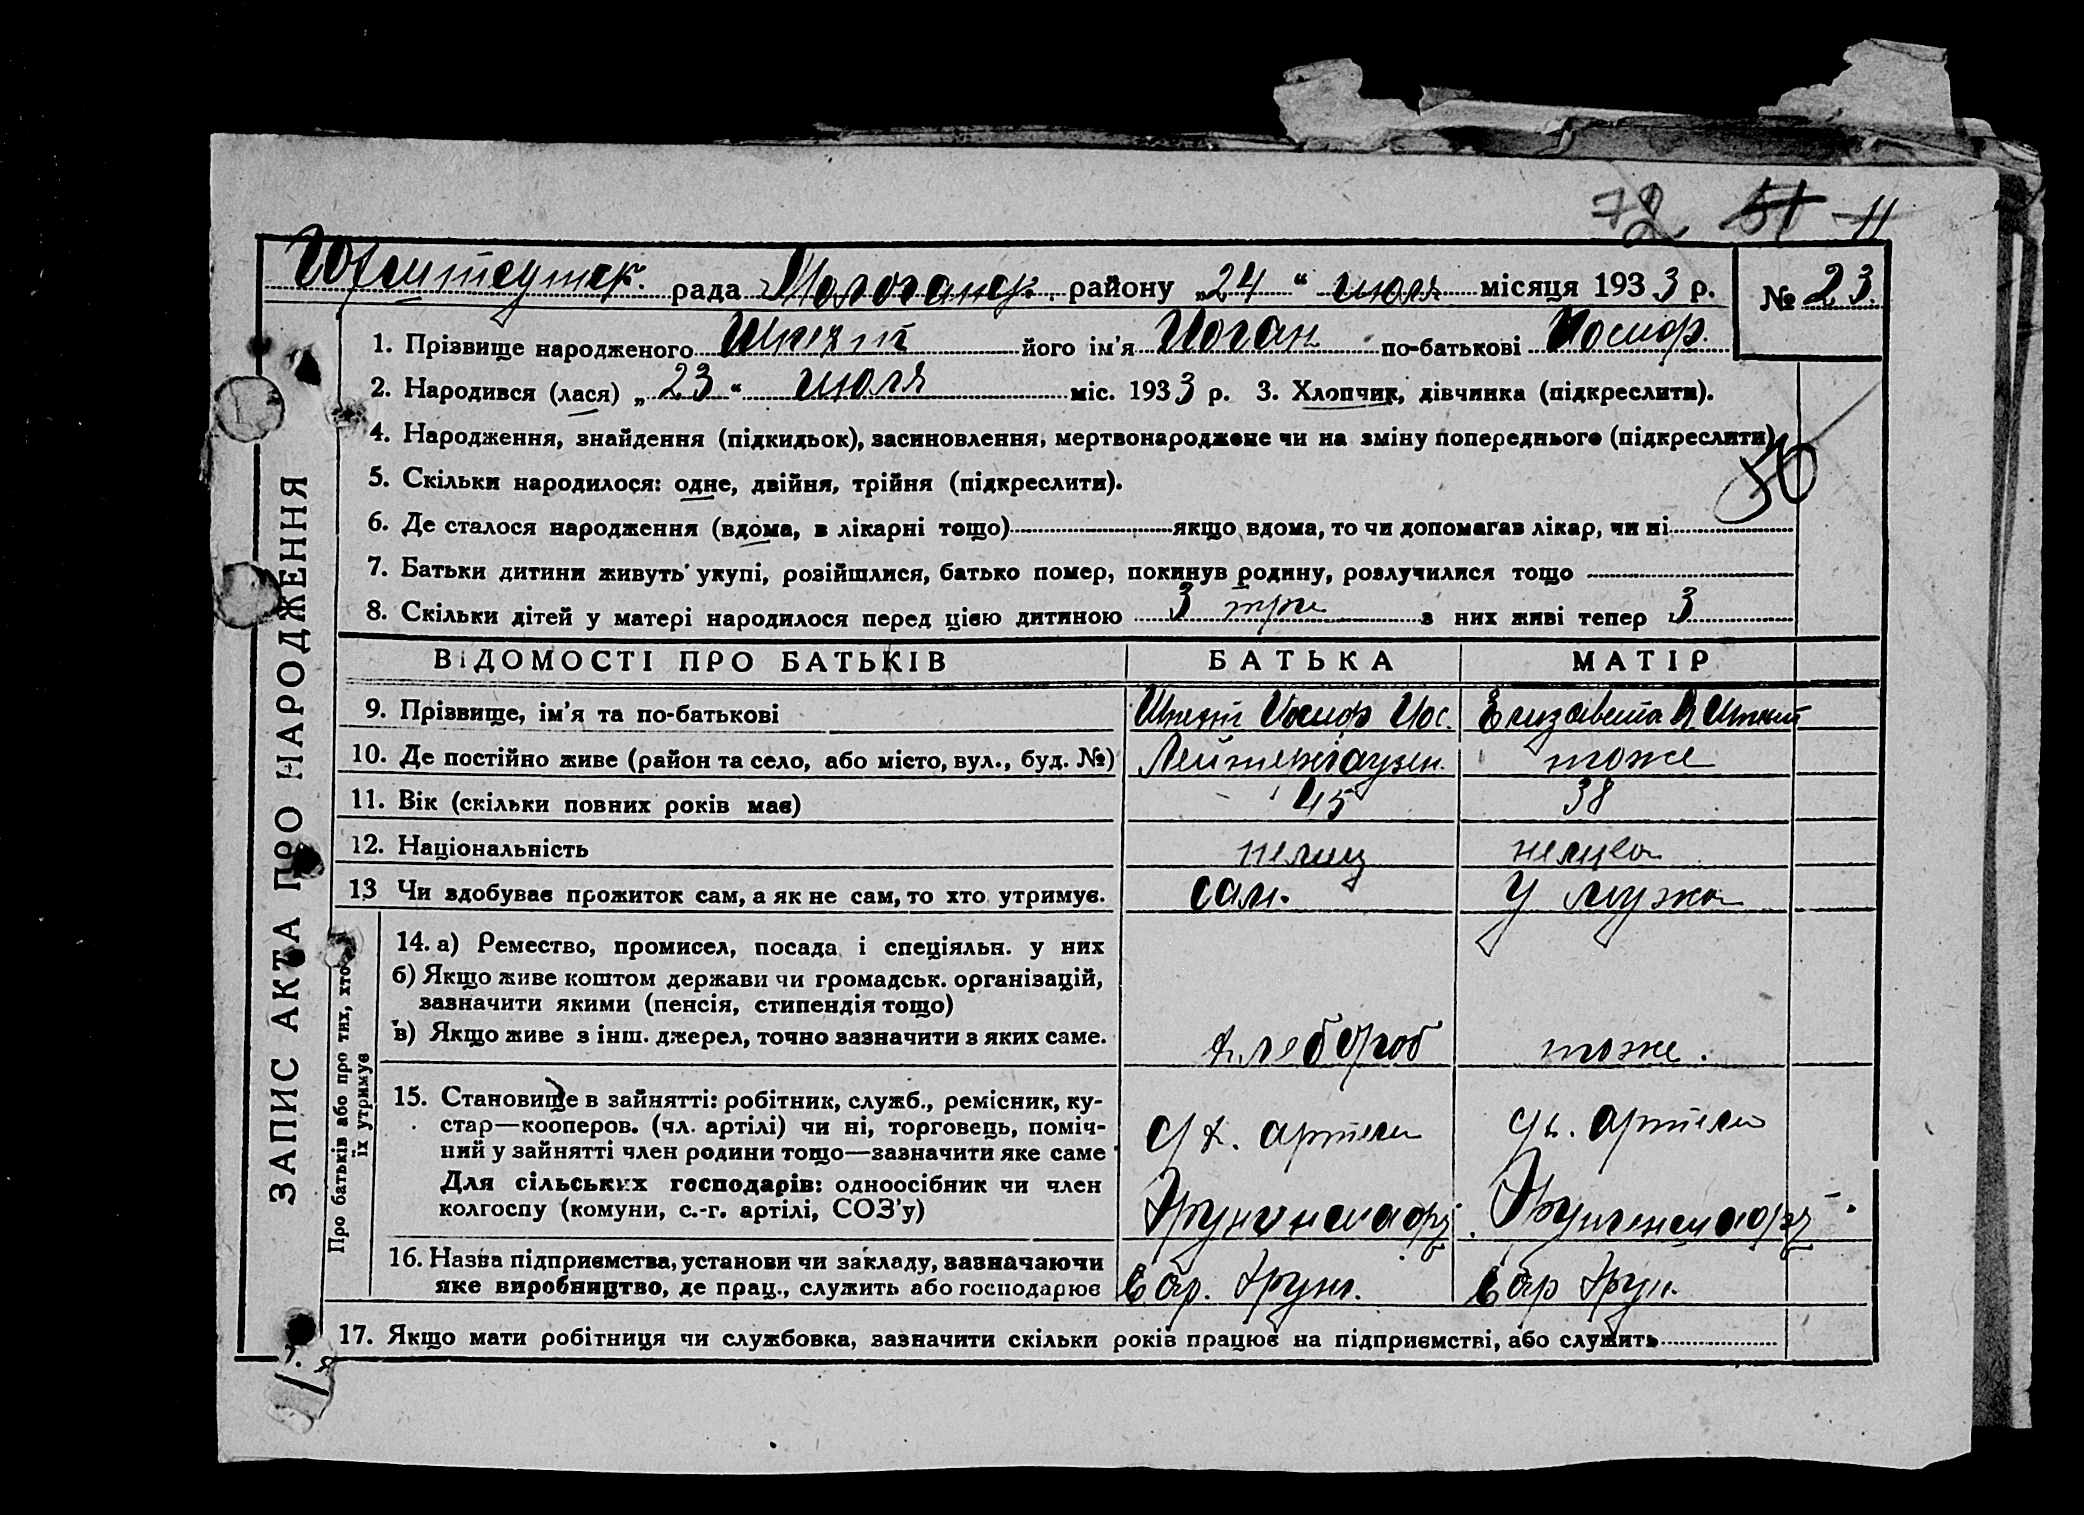 72 51 11
рада Молочанск. району „24" июля місяця 1933 р. № 23.
1. Прізвище народженого його ім'я Иоган по-батькові Иосиф.
2. Народився (лася) „23" июля міс. 1933 р. 3. Хлопчик, дівчинка (підкреслити).
4. Народження, знайдення (підкидьок), засиновлення, мертвонароджене чи на зміну попереднього (підкреслити)
5. Скільки народилося: одне, двійня, трійня (підкреслити).
6. Де сталося народження (вдома, в лікарні тощо) якщо вдома, то чи допомагав лікар, чи ні
7. Батьки дитини живуть укупі, розійшлися, батько помер, покинув родину, розлучилися тощо
8. Скільки дітей у матері народилося перед цією дитиною 3 три з них живі тепер 3
ЗАПИС АКТА ПРО НАРОДЖЕННЯ
ВІДОМОСТІ ПРО БАТЬКІВ БАТЬКА МАТІР
9. Прізвище, ім'я та по-батькові Иосиф Иос. Елизавета
10. Де постійно живе (район та село, або місто, вул., буд. №) тоже
11. Вік (скільки повних років має) 45 38
12. Національність немец немка
13 Чи здобуває прожиток сам, а як не сам, то хто утримує. сам. у мужа
Про батьків або про тих, хто
їх утримує
14. а) Ремество, промисел, посада і спеціяльн. у них
б) Якщо живе коштом держави чи громадськ. організацій,
зазначити якими (пенсія, стипендія тощо)
в) Якщо живе з інш. джерел, точно зазначити з яких саме. хлебороб тоже.
15. Становище в зайнятті: робітник, служб., ремісник, ку-
стар—кооперов. (чл. артілі) чи ні, торговець, поміч-
ний у зайнятті член родини тощо—зазначити яке саме артели артели
Для сільських господарів: одноосібник чи член
колгоспу (комуни, с.-г. артілі, СОЗ'у)
16. Назва підприємства, установи чи закладу, зазначаючи
яке виробництво, де прац., служить або господарює
17. Якщо мати робітниця чи службовка, зазначити скільки років працює на підприємстві, або служить